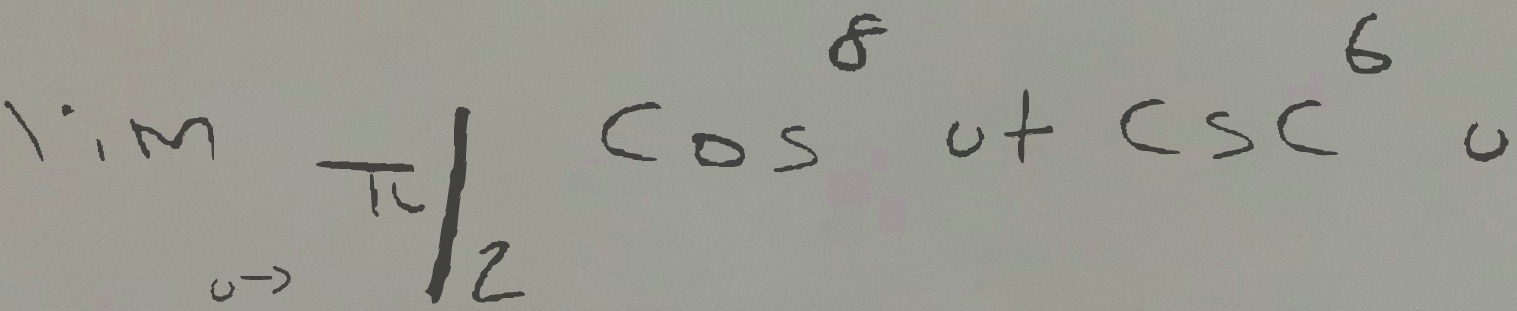 lim u→ π/2 cos^8 u + csc^6 u